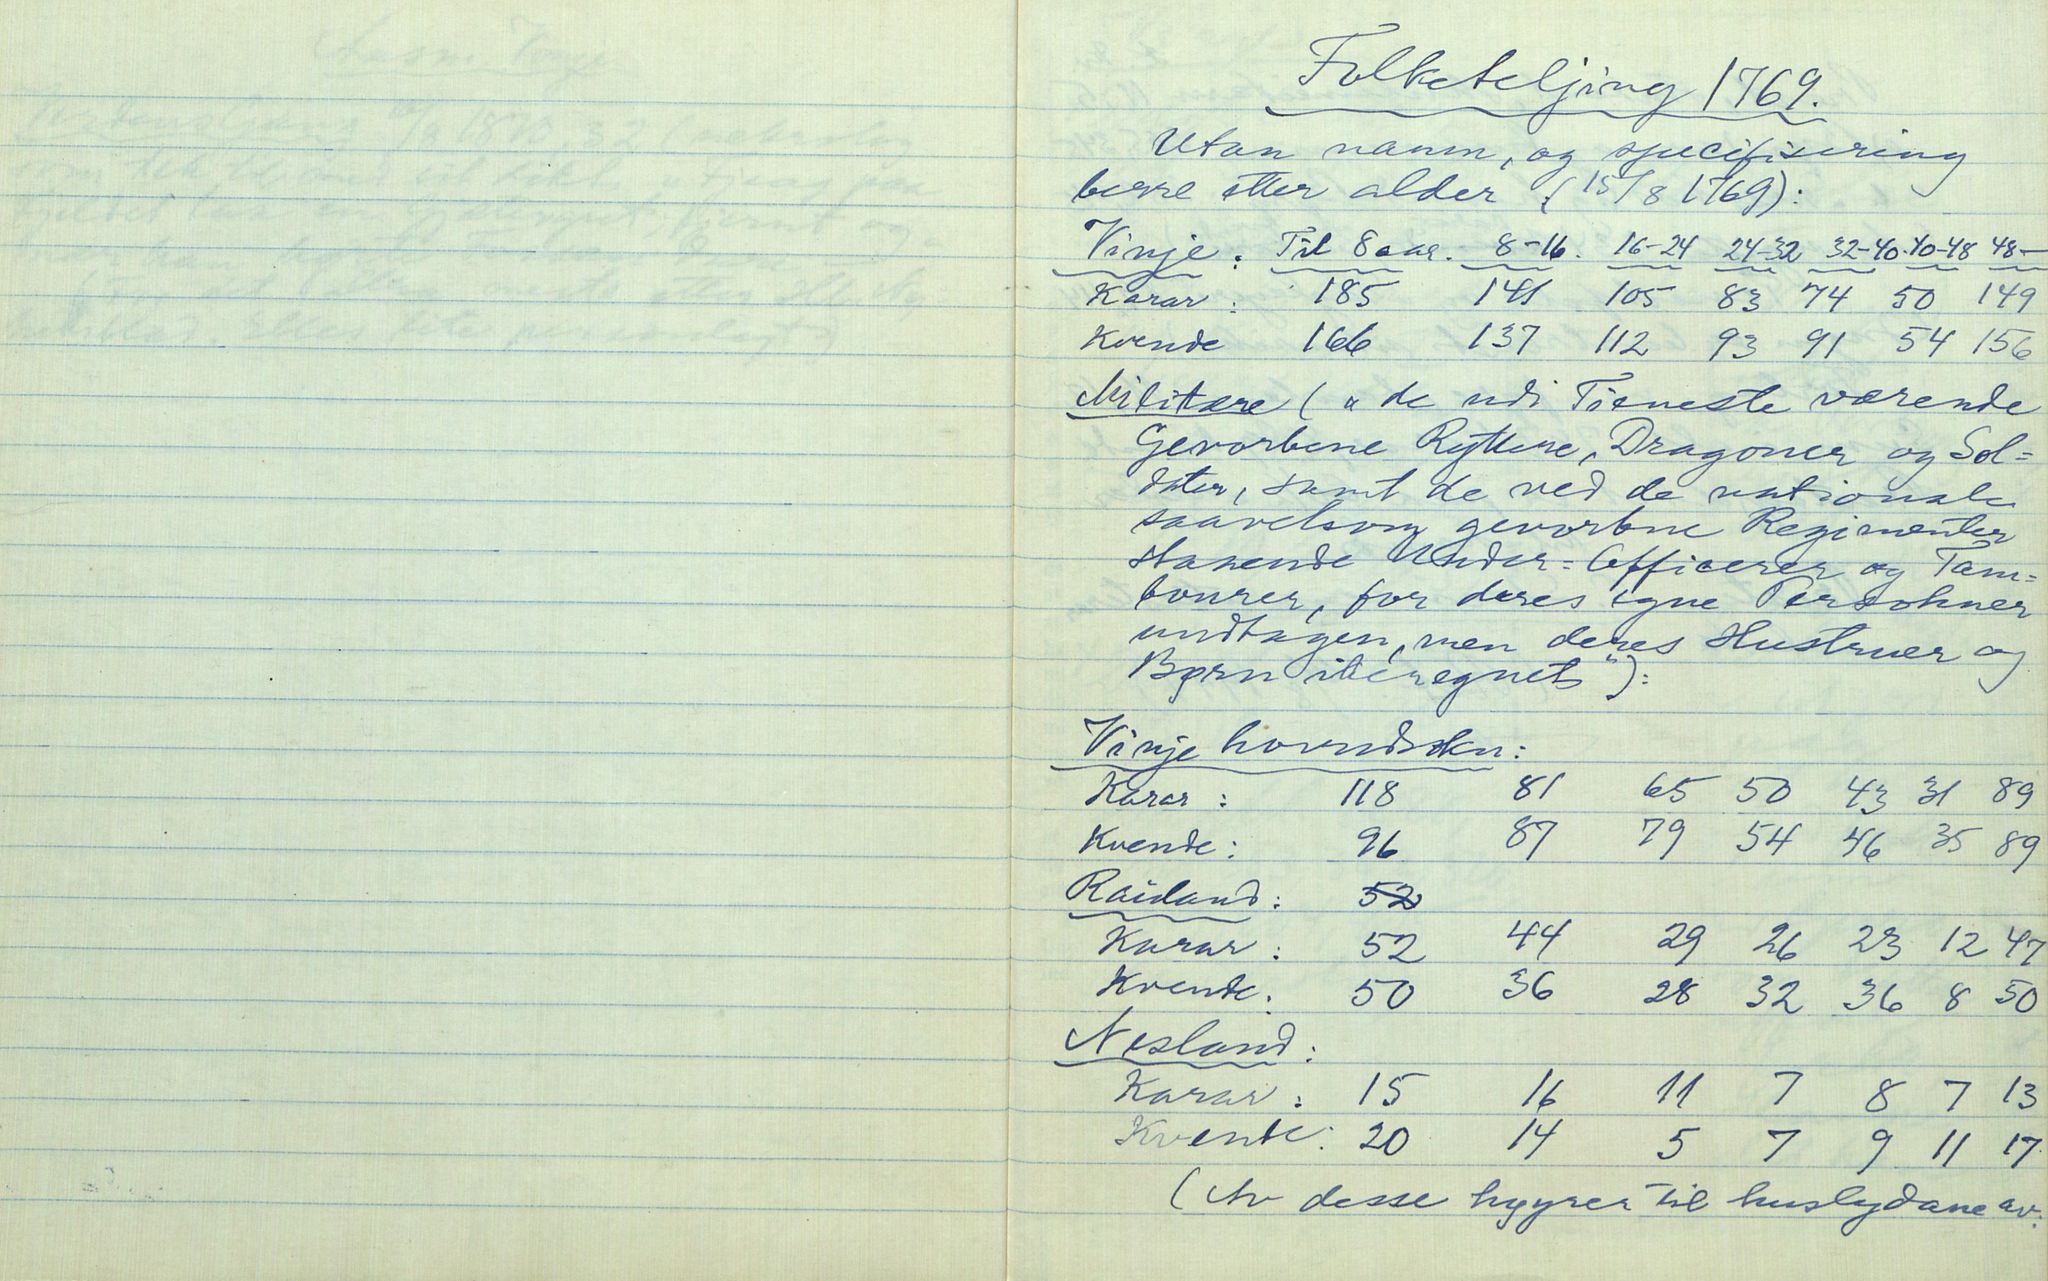 Folketeljing 1769.
Utan namn, og specifisering
berre etter alder (15/8 1769):
Vinje: Til 8 aar. 8-16. 16-24 24-32 32-40 40-48 48-
Karar: 185 141 105 83 74 50 149
Kvende 166 137 112 93 91 54 156
Militære ( „ de udi Tieneste værende
Gevorbene Ryttere, Dragoner og Sol=
dater, samt de ved de nationale
saavelsom gevorbne Regimenter
staaende Under=Officerer og Tam=
bourer, for deres egne Persohner
undtagen, men deres Hustruer og
Børn iberegnet"):
Vinje hovudsokn:
Karar: 118 81 65 50 43 31 89
Kvende: 96 87 79 54 46 35 89
Raudland: 52
Karar: 52 44 29 26 23 12 47
Kvende: 50 36 28 32 36 8 50
Nesland:
Karar: 15 16 11 7 8 7 13
Kvende: 20 14 5 7 9 11 17
(Av desse høyrer til huslydane av: